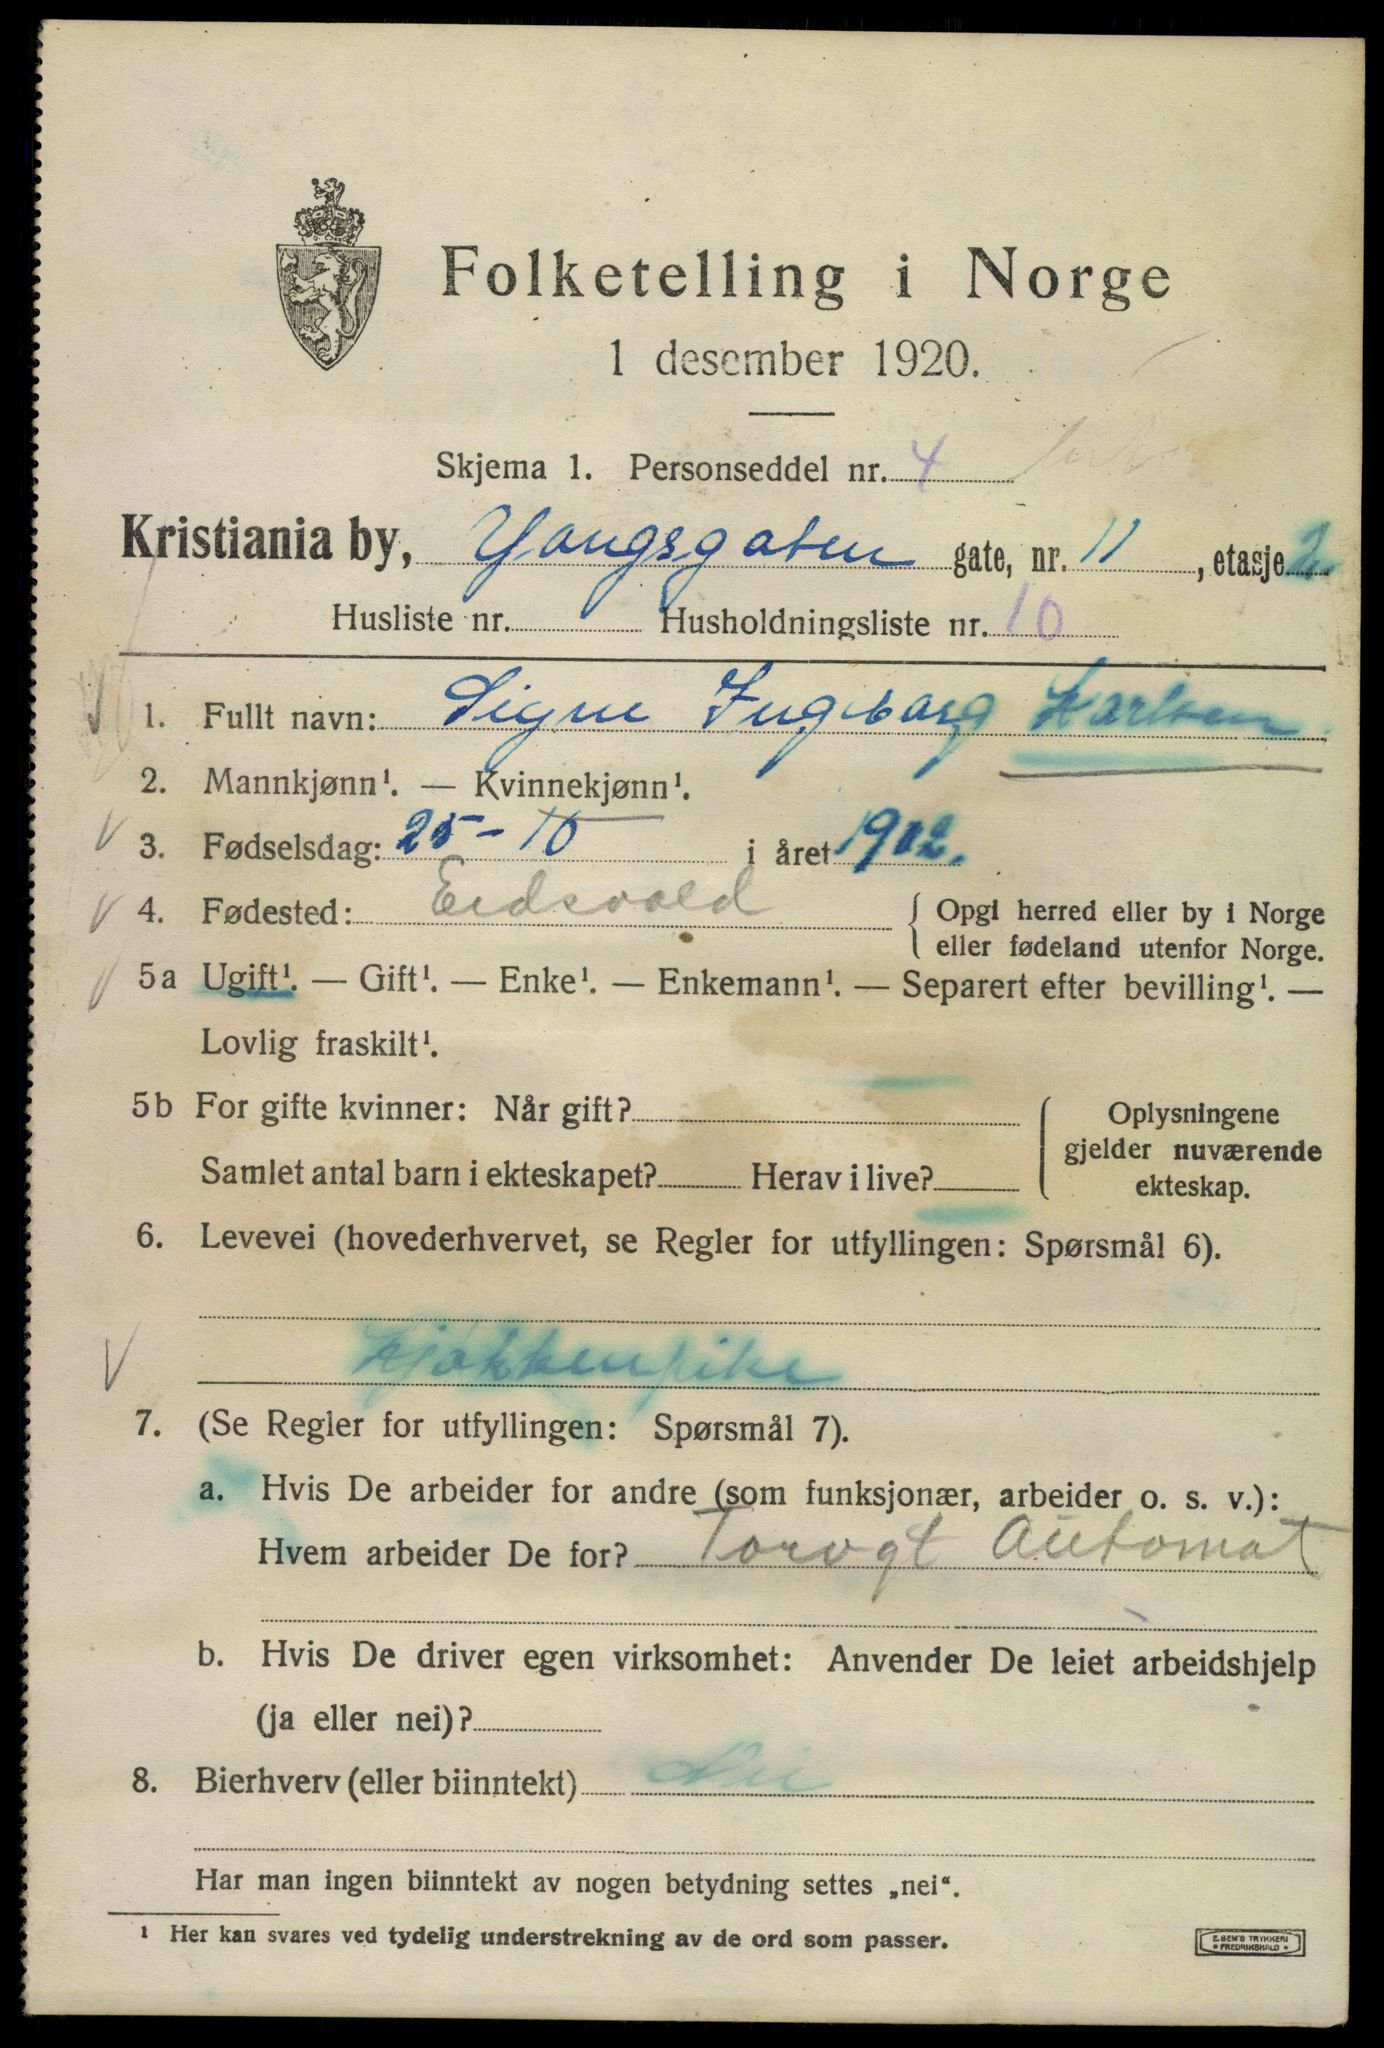 Folketelling i Norge
1 desember 1920.
Skjema 1. Personseddel nr. 4
Kristiania by, Yougsgaten gate, nr. 11, etasje 2.
Husliste nr. Husholdningsliste nr. 10
1. Fullt navn: Signe Ingeborg Karlsen
2. Mannkjønn¹. — Kvinnekjønn¹.
3. Fødselsdag: 25-10 i året 1902.
4. Fødested: Eidsvold { Opgi herred eller by i Norge
eller fødeland utenfor Norge.
5a Ugift¹. — Gift¹. — Enke¹. — Enkemann¹. — Separert efter bevilling¹. —
Lovlig fraskilt¹.
5b For gifte kvinner: Når gift? Oplysningene
gjelder nuværende
Samlet antal barn i ekteskapet? Herav i live? ekteskap.
6. Levevei (hovederhvervet, se Regler for utfyllingen: Spørsmål 6).
Kjøkkenpike
7. (Se Regler for utfyllingen: Spørsmål 7).
a. Hvis De arbeider for andre (som funksjonær, arbeider o. s. v.):
Hvem arbeider De for? Torvgt Automat
b. Hvis De driver egen virksomhet: Anvender De leiet arbeidshjelp
(ja eller nei)?
8. Bierhverv (eller biinntekt) Nei
Har man ingen biinntekt av nogen betydning settes „nei“.
¹ Her kan svares ved tydelig understrekning av de ord som passer.
E. SEM'S TRYKKERI
FREDRIKSHALD